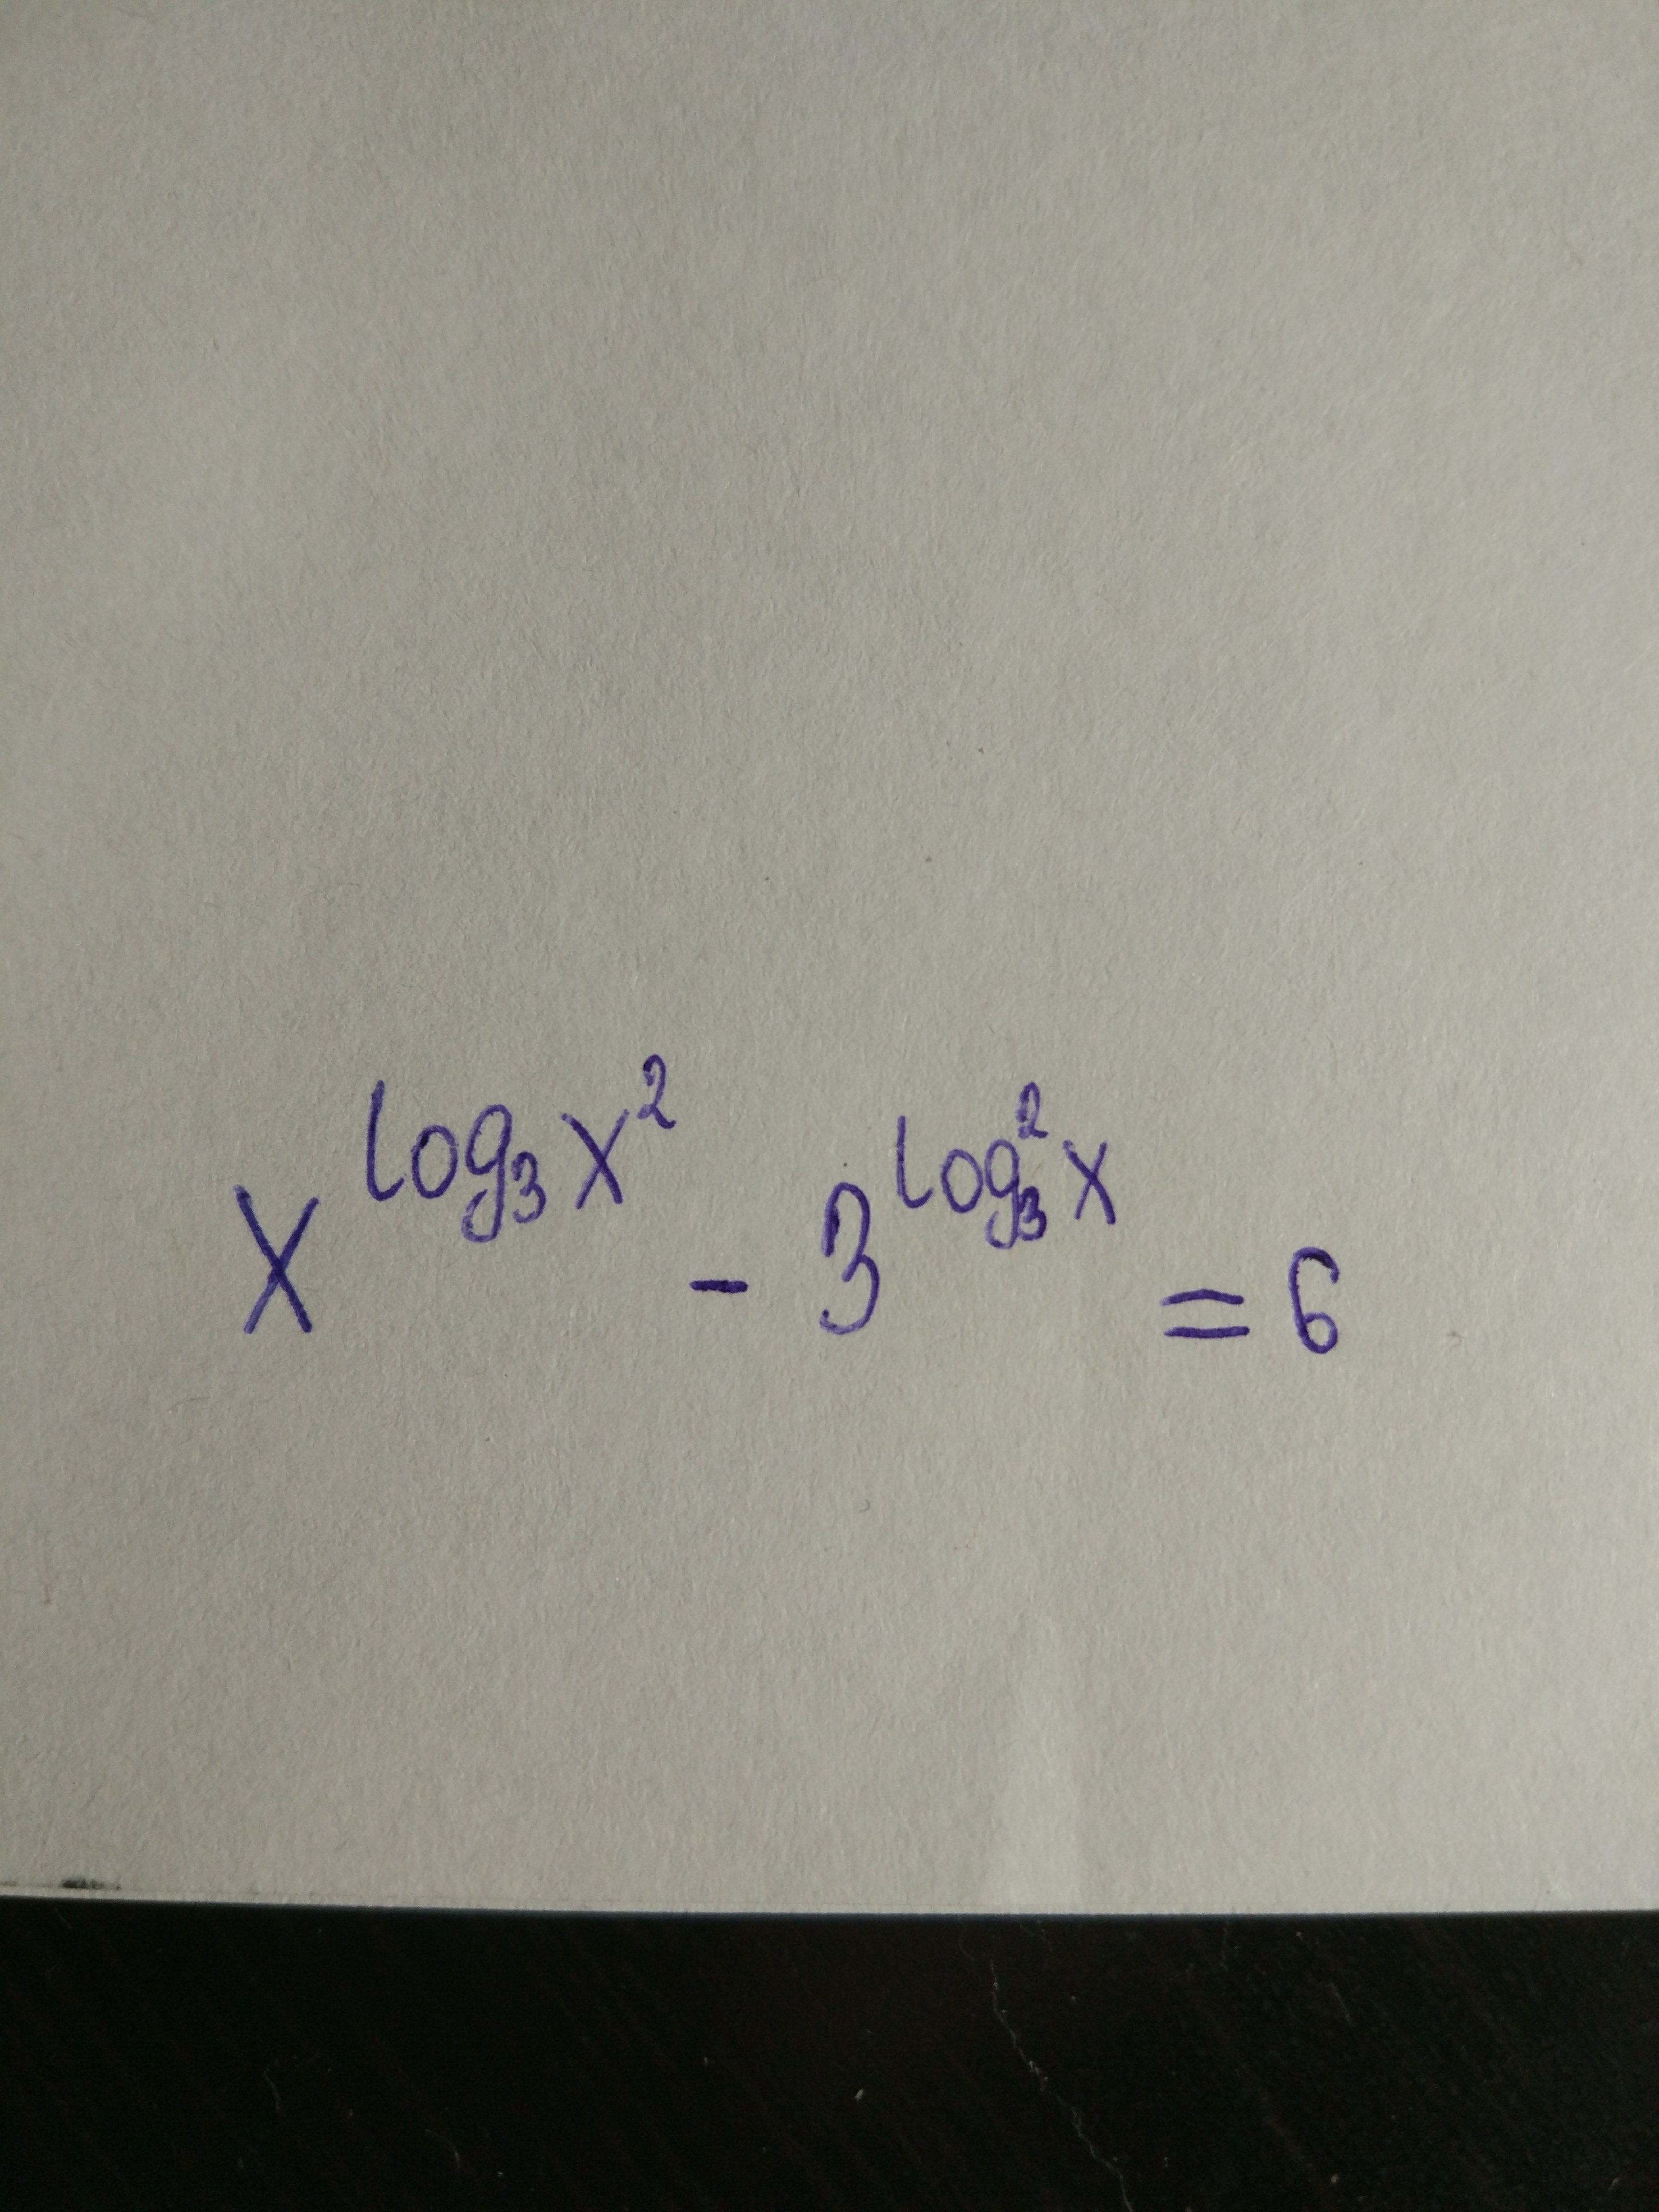 x^{log₃ x²} - 3^{log₃² x} = 6